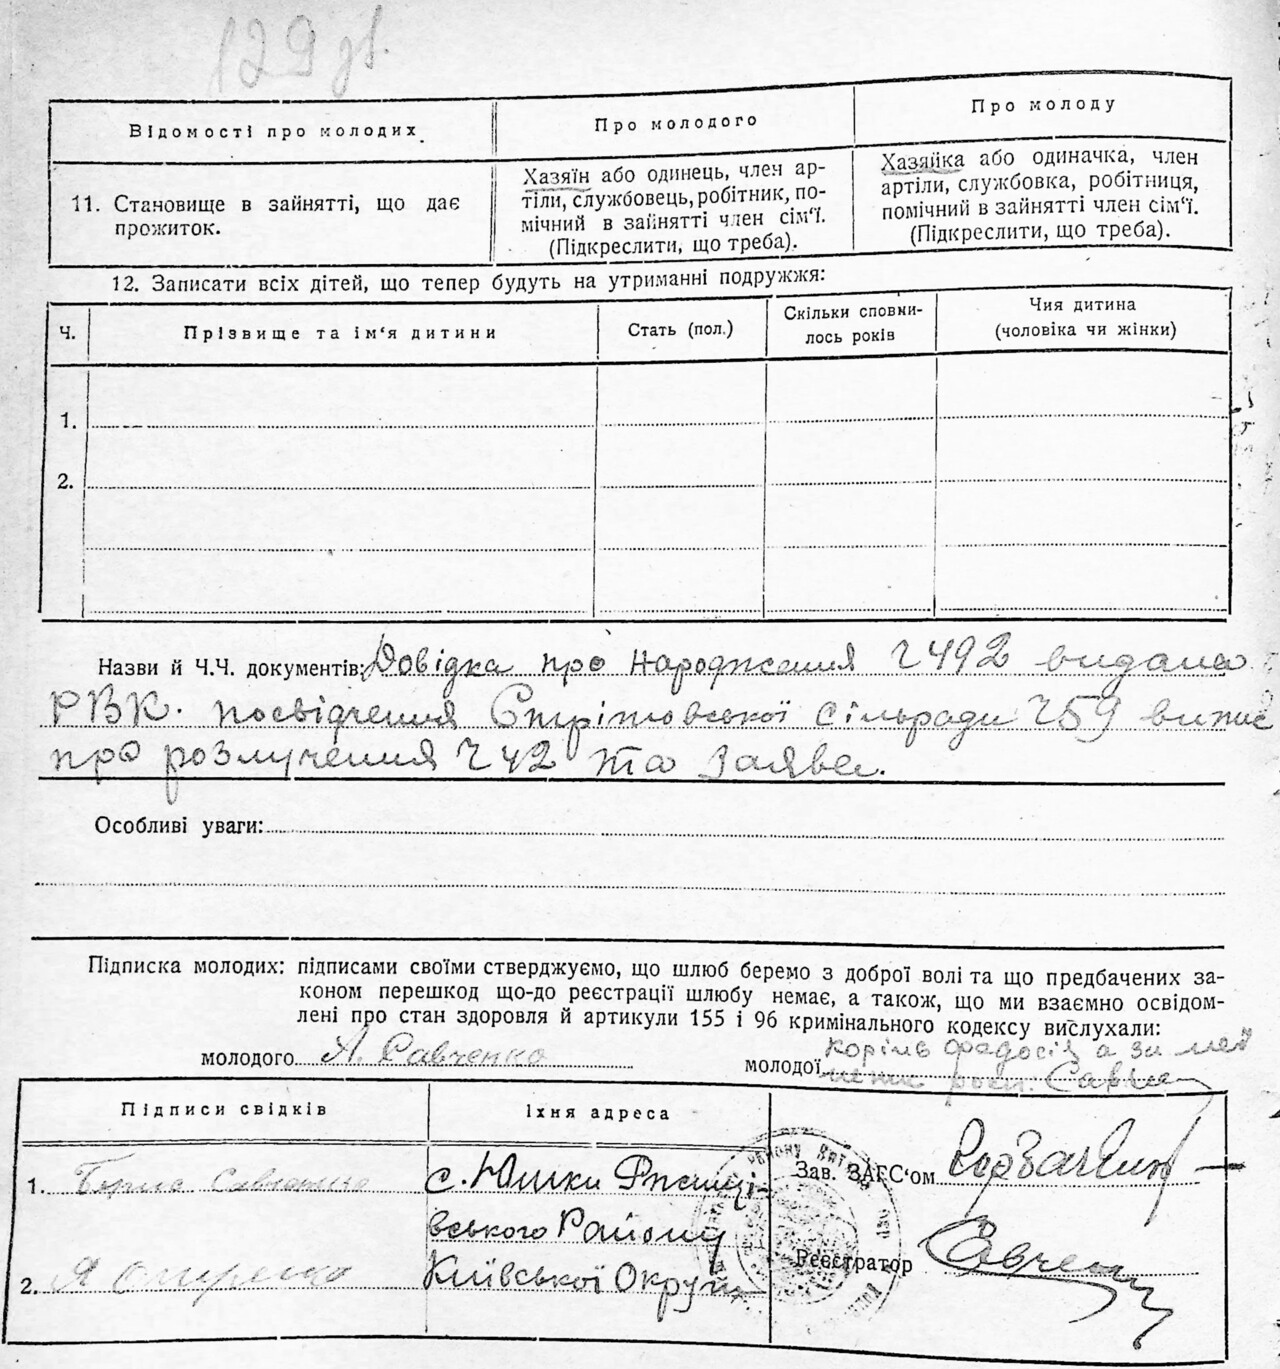 129 зв.
Відомості про молодих.
Про молодого
Про молоду
11. Становище в зайнятті, що дає
прожиток.
Хазяїн або одинець, член ар-
тіли, службовець, робітник, по-
мічний в зайнятті член сім'ї.
(Підкреслити, що треба).
Хазяйка або одиначка, член
артіли, службовка, робітниця,
помічний в зайнятті член сім'ї.
(Підкреслити, що треба).
12. Записати всіх дітей, що тепер будуть на утриманні подружжя:
Ч.
Прізвище та ім'я дитини
Стать (пол.)
Скільки сповни-
лось років
Чия дитина
(чоловіка чи жінки)
1.
2.
Назви й Ч.Ч. документів: Довідка про народження Ч 492 видана
РВК. посвідчення Стрітовської сільради Ч 59 випис
про розлучення Ч 42 та заява.
Особливі уваги:
Підписка молодих: підписами своїми стверджуємо, що шлюб беремо з доброї волі та що предбачених за-
коном перешкод що-до реєстрації шлюбу немає, а також, що ми взаємно освідом-
лені про стан здоровля й артикули 155 і 96 кримінального кодексу вислухали:
молодого А. Савченко
молодої а за
Підписи свідків
Їхня адреса
1.
с. Юшки Ржищі-
вського Району
Київської Округи
2. Я
Зав. ЗАГС'ом
Реєстратор